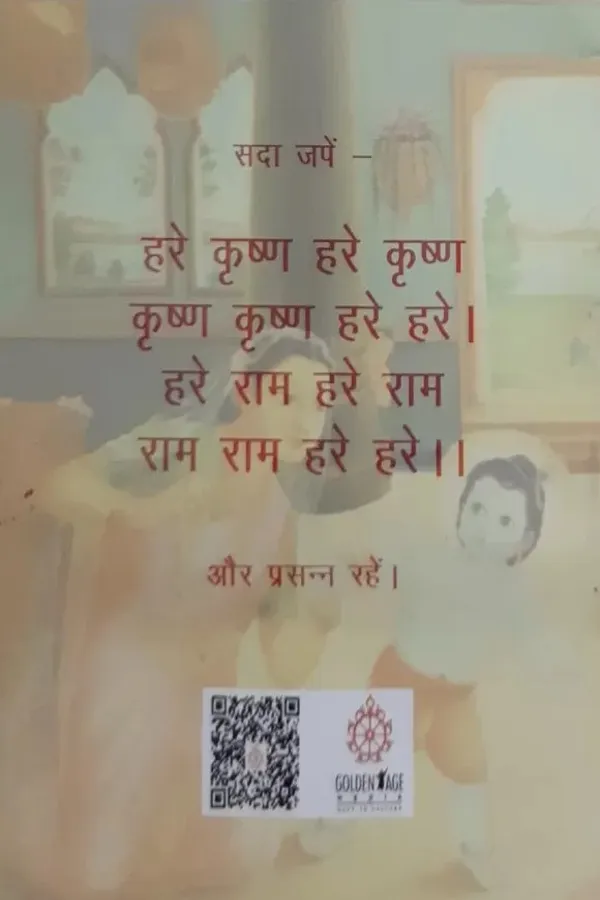 सदा जपें –
हरे कृष्ण हरे कृष्ण
कृष्ण कृष्ण हरे हरे।
हरे राम हरे राम
राम राम हरे हरे।।
और प्रसन्न रहें।
GOLDEN AGE
MEDIA